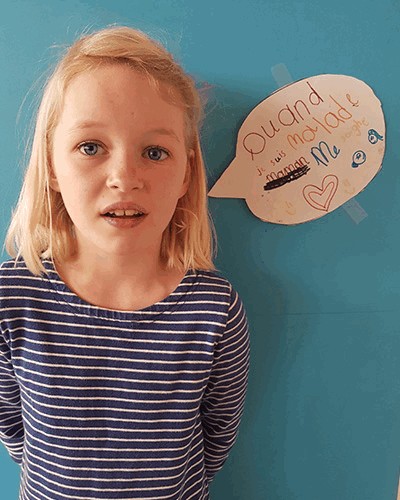 Quand
je suis malade
maman Me soigne